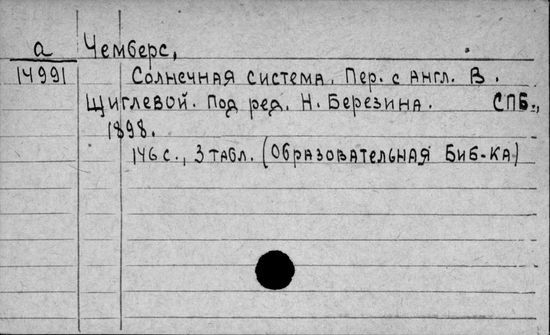 а Чемберс,
14991 Солнечная система. Пер. с англ. В.
Щиглевой. Под ред. Н. Березина. СПБ.,
1898.
146 с., 3 табл. (Образовательная биб-ка)